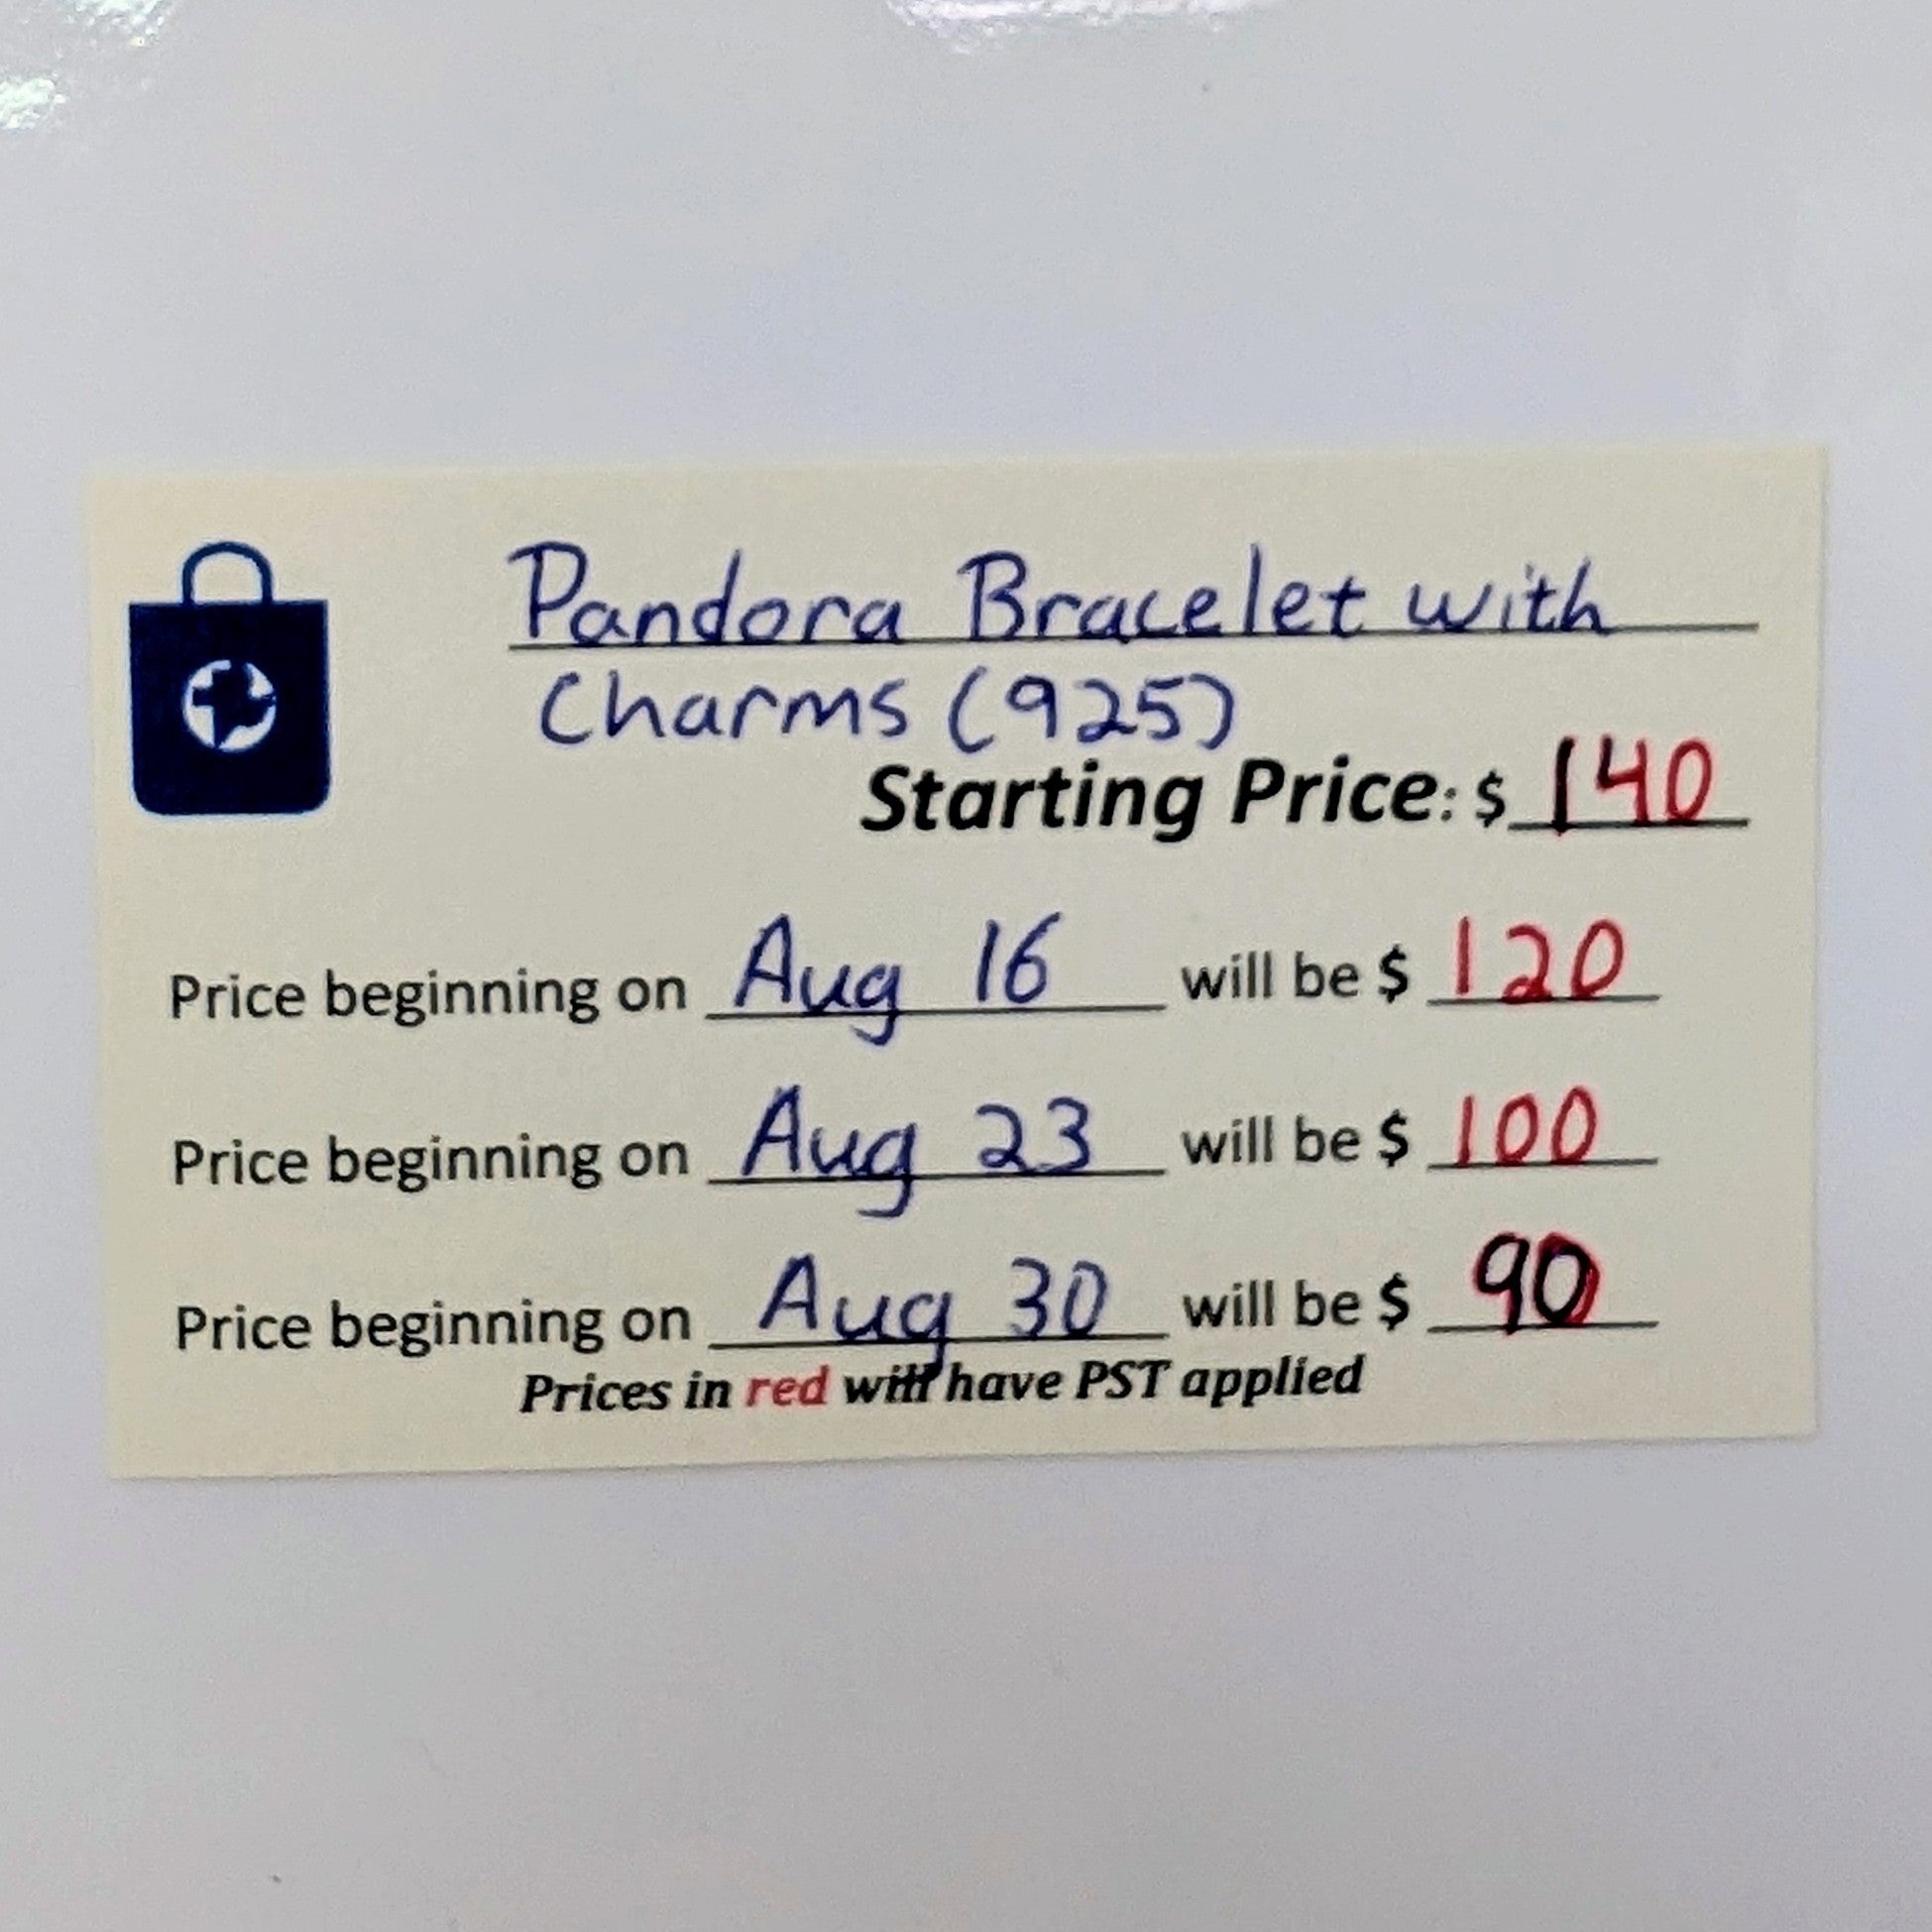 Pandora Bracelet with
Charms (925)
Starting Price: $ 140
Price beginning on Aug 16 will be $ 120
Price beginning on Aug 23 will be $ 100
Price beginning on Aug 30 will be $ 90
Prices in red will have PST applied